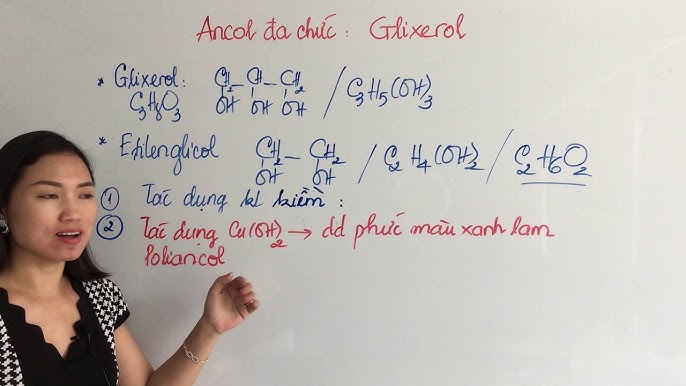 Ancol đa chức : Glixerol
* Glixerol: CH₂ - CH - CH₂ / C₃H₅(OH)₃
OH OH OH
C₃H₈O₃
* Etilenglicol CH₂ - CH₂ / C₂H₄(OH)₂ / C₂H₆O₂
OH OH
① Tác dụng kl kiềm :
② Tác dụng Cu(OH)₂ → dd phức màu xanh lam
Poliancol